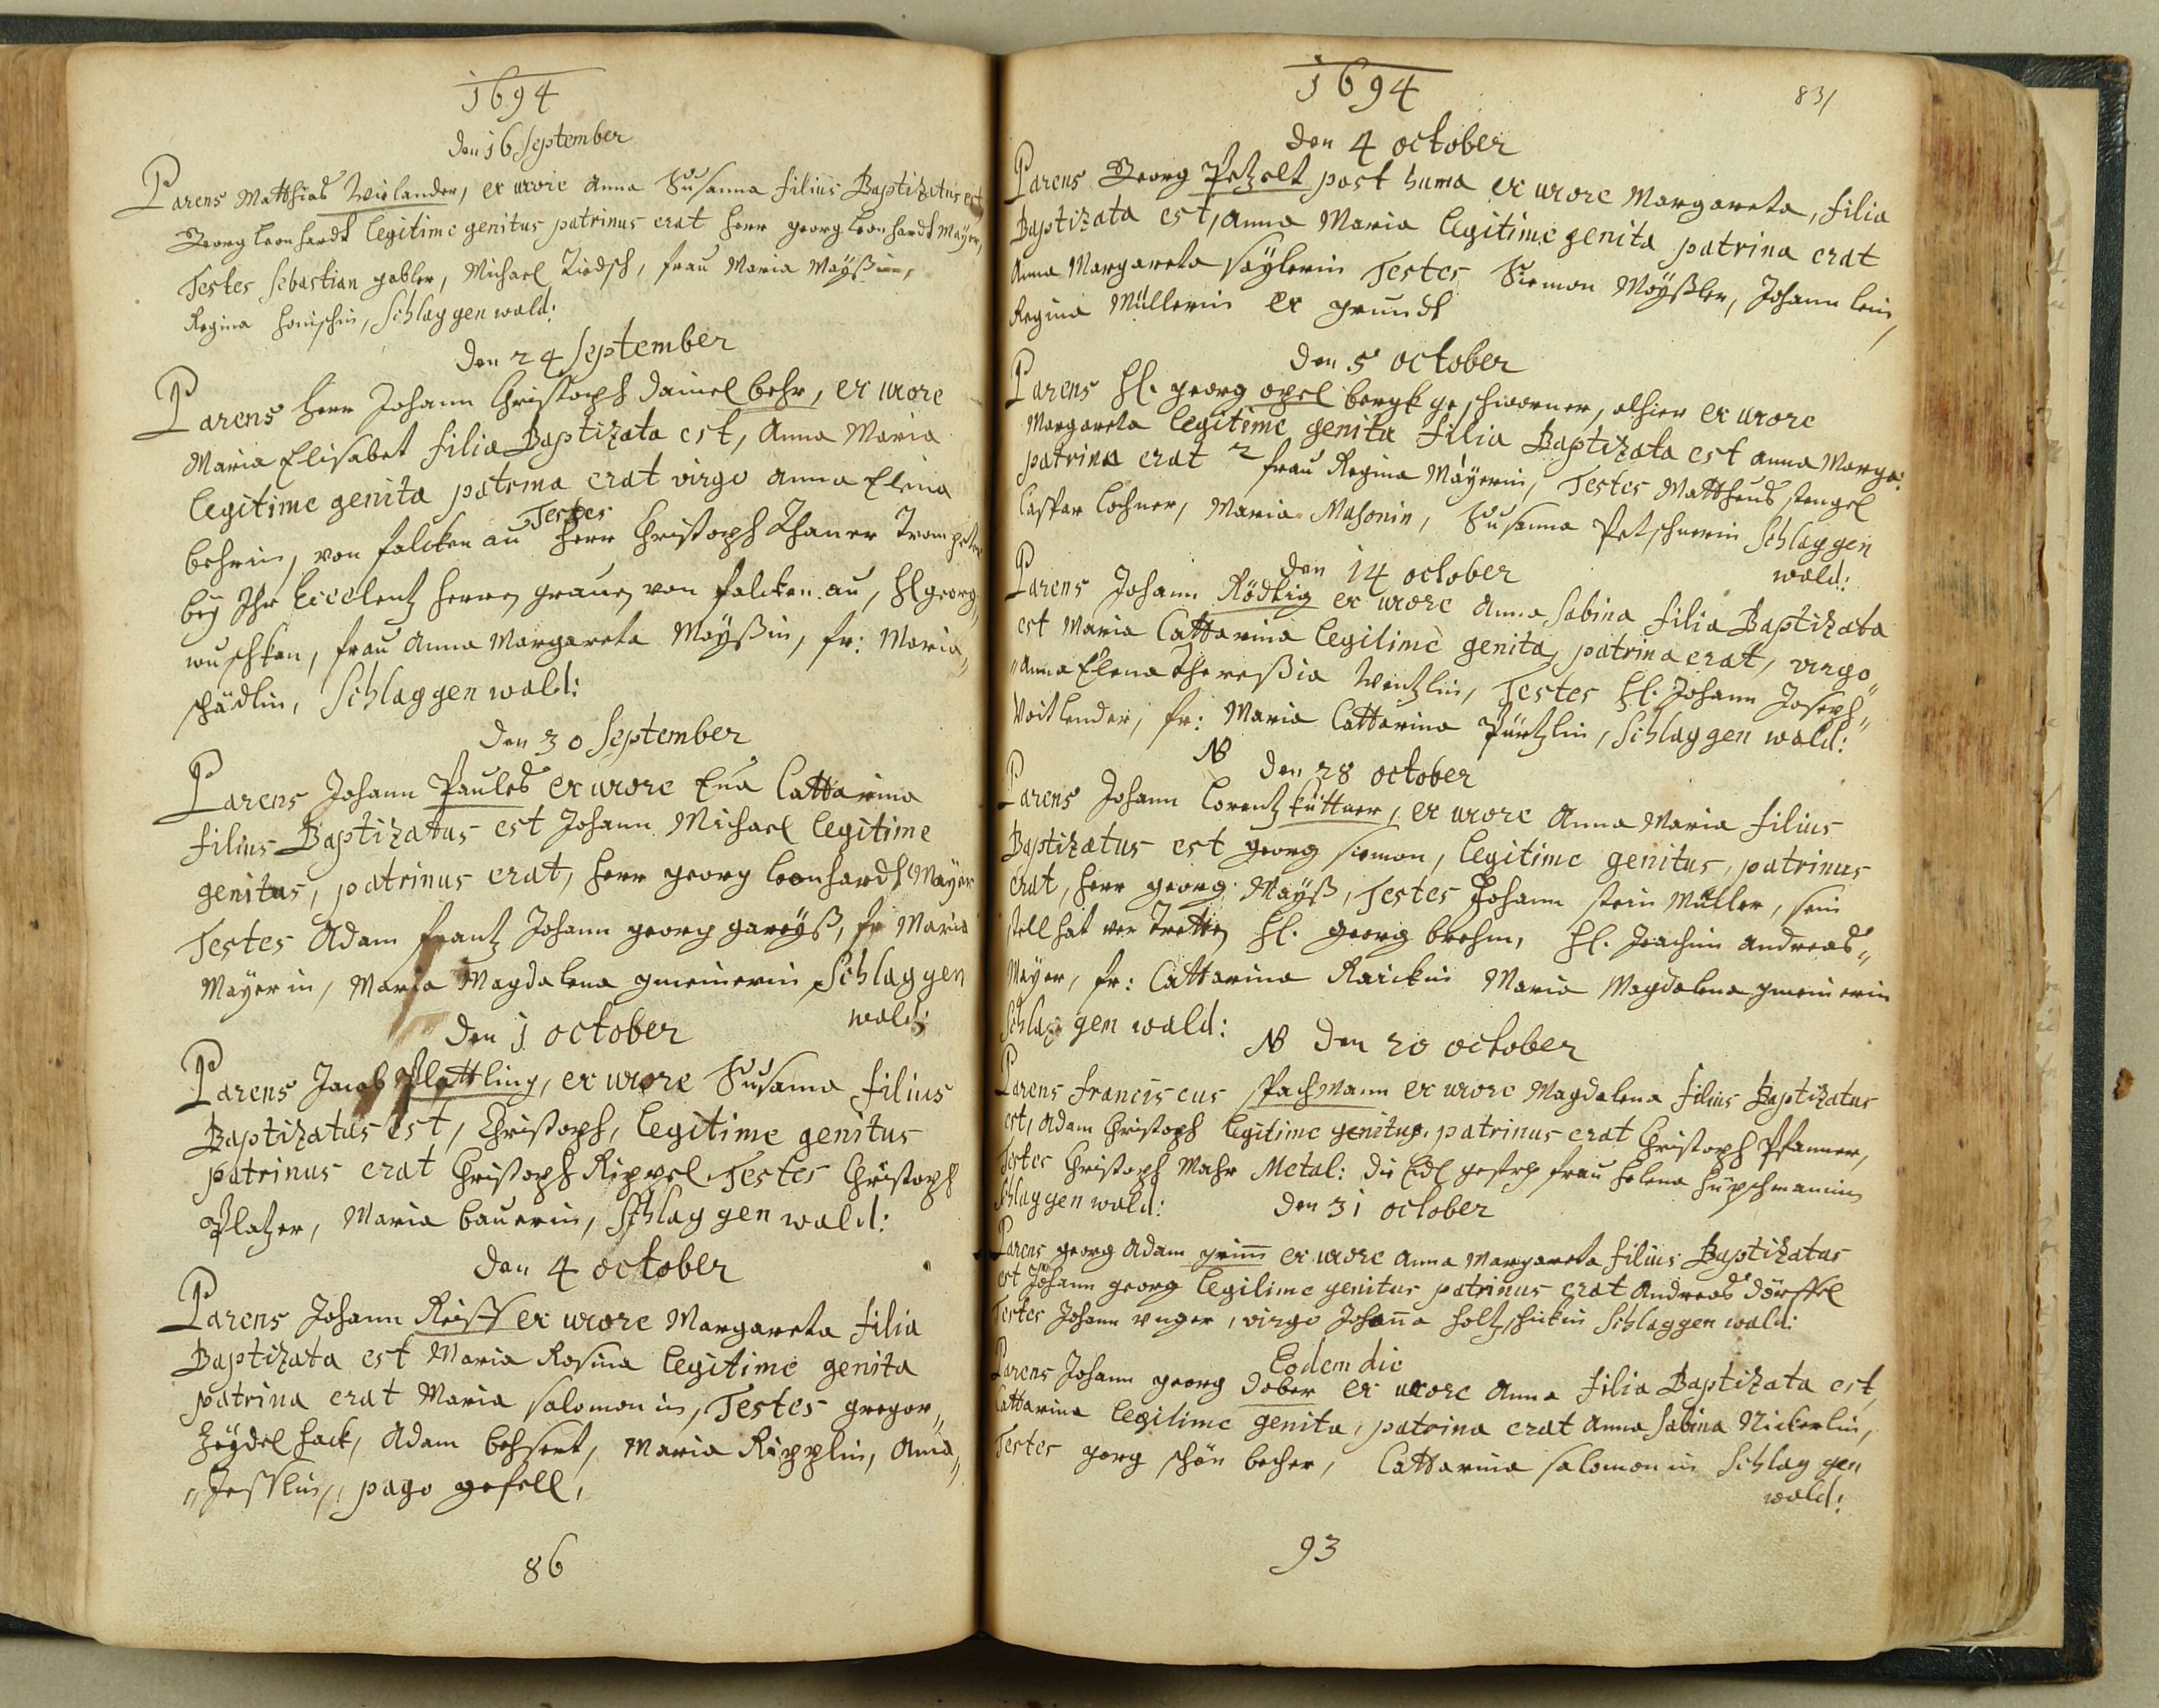 1694
den 16 September
Parens Matthias Wielander, ex uxore Anna Susanna filius Baptizatus est
Georg Leonhardt legitime genitus patrinus erat Herr georg Leonhardt Mayer,
Testes Sebastian gabler, Michael frau Maria Mayßin,
Regina Schlaggenwald:
den 24 September
Parens Herr Johann Christoph Daniel behr, ex uxore
Maria Elisabet filia Baptizata est, Anna Maria
legitime genita patrina erat virgo Anna Elena
behrin, von falcken au Testes Herr Christoph Thaner Trompeter
beÿ Ihr Excelentz Herren graven von falcken au, Hl georg
wuschken, frau Anna Margareta Maÿßin, fr: Maria
schädlin, Schlaggen wald:
den 30 September
Parens Johann Paulus ex uxore Eva Cattarina
filius Baptizatus est Johann Michael legitime
genitus, patrinus erat, Herr georg Leonhardt Mayer
Testes Adam frantz Johann georg gareÿß, fr Maria
Mayerin, Maria Magdalena gmeinerin Schlaggen
wald:
den 1 october
Parens Jacob Plattling, ex uxore Susanna filius
Baptizatus est, Christoph, legitime genitus
patrinus erat Christoph Rippel Testes Christoph
Platzer, Maria bauerin, Schlaggen wald:
den 4 october
Parens Johann Reiss ex uxore Margareta filia
Baptizata est Maria Rosina legitime genita
patrina erat Maria Salomonin, Testes gregor
Heÿdel hack, Adam Maria Ripplin, Anna
pago gefell,
86
1694
831
den 4 october
Parens Georg Petzolt post huma ex uxore Margareta, filia
Baptizata est, Anna Maria legitime genita patrina erat
Anna Margareta saÿlerin Testes Siemon Maÿßler, Johann lein,
Regina Müllerin ex grundt
den 5 october
Parens Hl. georg opel bergk geschworner, alhier ex uxore
Margareta legitime genita filia Baptizata est Anna Marga:
patrina erat frau Regina Mayerin, Testes Mattheus stengel
Caspar Lochner, Maria Masonin, Susanna Petschnerin Schlaggen
wald:
den 14 october
Parens Johann Rödtig ex uxore Anna Sabina filia Baptizata
est Maria Cattarina legitime genita, patrina erat, virgo
Anna Elena thereßia Wentzlin, Testes Hl. Johann Joseph
Voitlender, fr: Maria Cattarina Pürtzlin, Schlaggen wald:
NB den 28 october
Parens Johann Lorentz küttner, ex uxore Anna Maria filius
Baptizatus est georg siemon, legitime genitus, patrinus
erat, Herr georg Maÿß, Testes Johann stein Müller, sein
stell hat ver tretten Hl. georg brehm, Hl. Joachim Andreas
Mayer, fr: Cattarina Maria Magdalena gmeinerin
Schlaggen wald:
NB den 20 october
Parens franciscus spachmann ex uxore Magdalena filius Baptizatus
est, Adam Christoph legitime genitus, patrinus erat Christoph Pfanner,
Testes Christoph Mahr Metal: die Edl gestrg frau Helena Hüpschmanin
Schlaggen wald:
den 31 october
Parens georg Adam grim̅ ex uxore Anna Margareta filius Baptizatus
est Johann georg legitime genitus patrinus erat Andreas dörffl
Testes Johann unger, virgo Johan̅a Schlaggen wald:
Eodem die
Parens Johann georg dober ex uxore Anna filia Baptizata est,
Cattarina legitime genita, patrina erat Anna Sabina Nickerlin,
Testes gorg schön becher, Cattarina salomonin Schlaggen
wald:
93